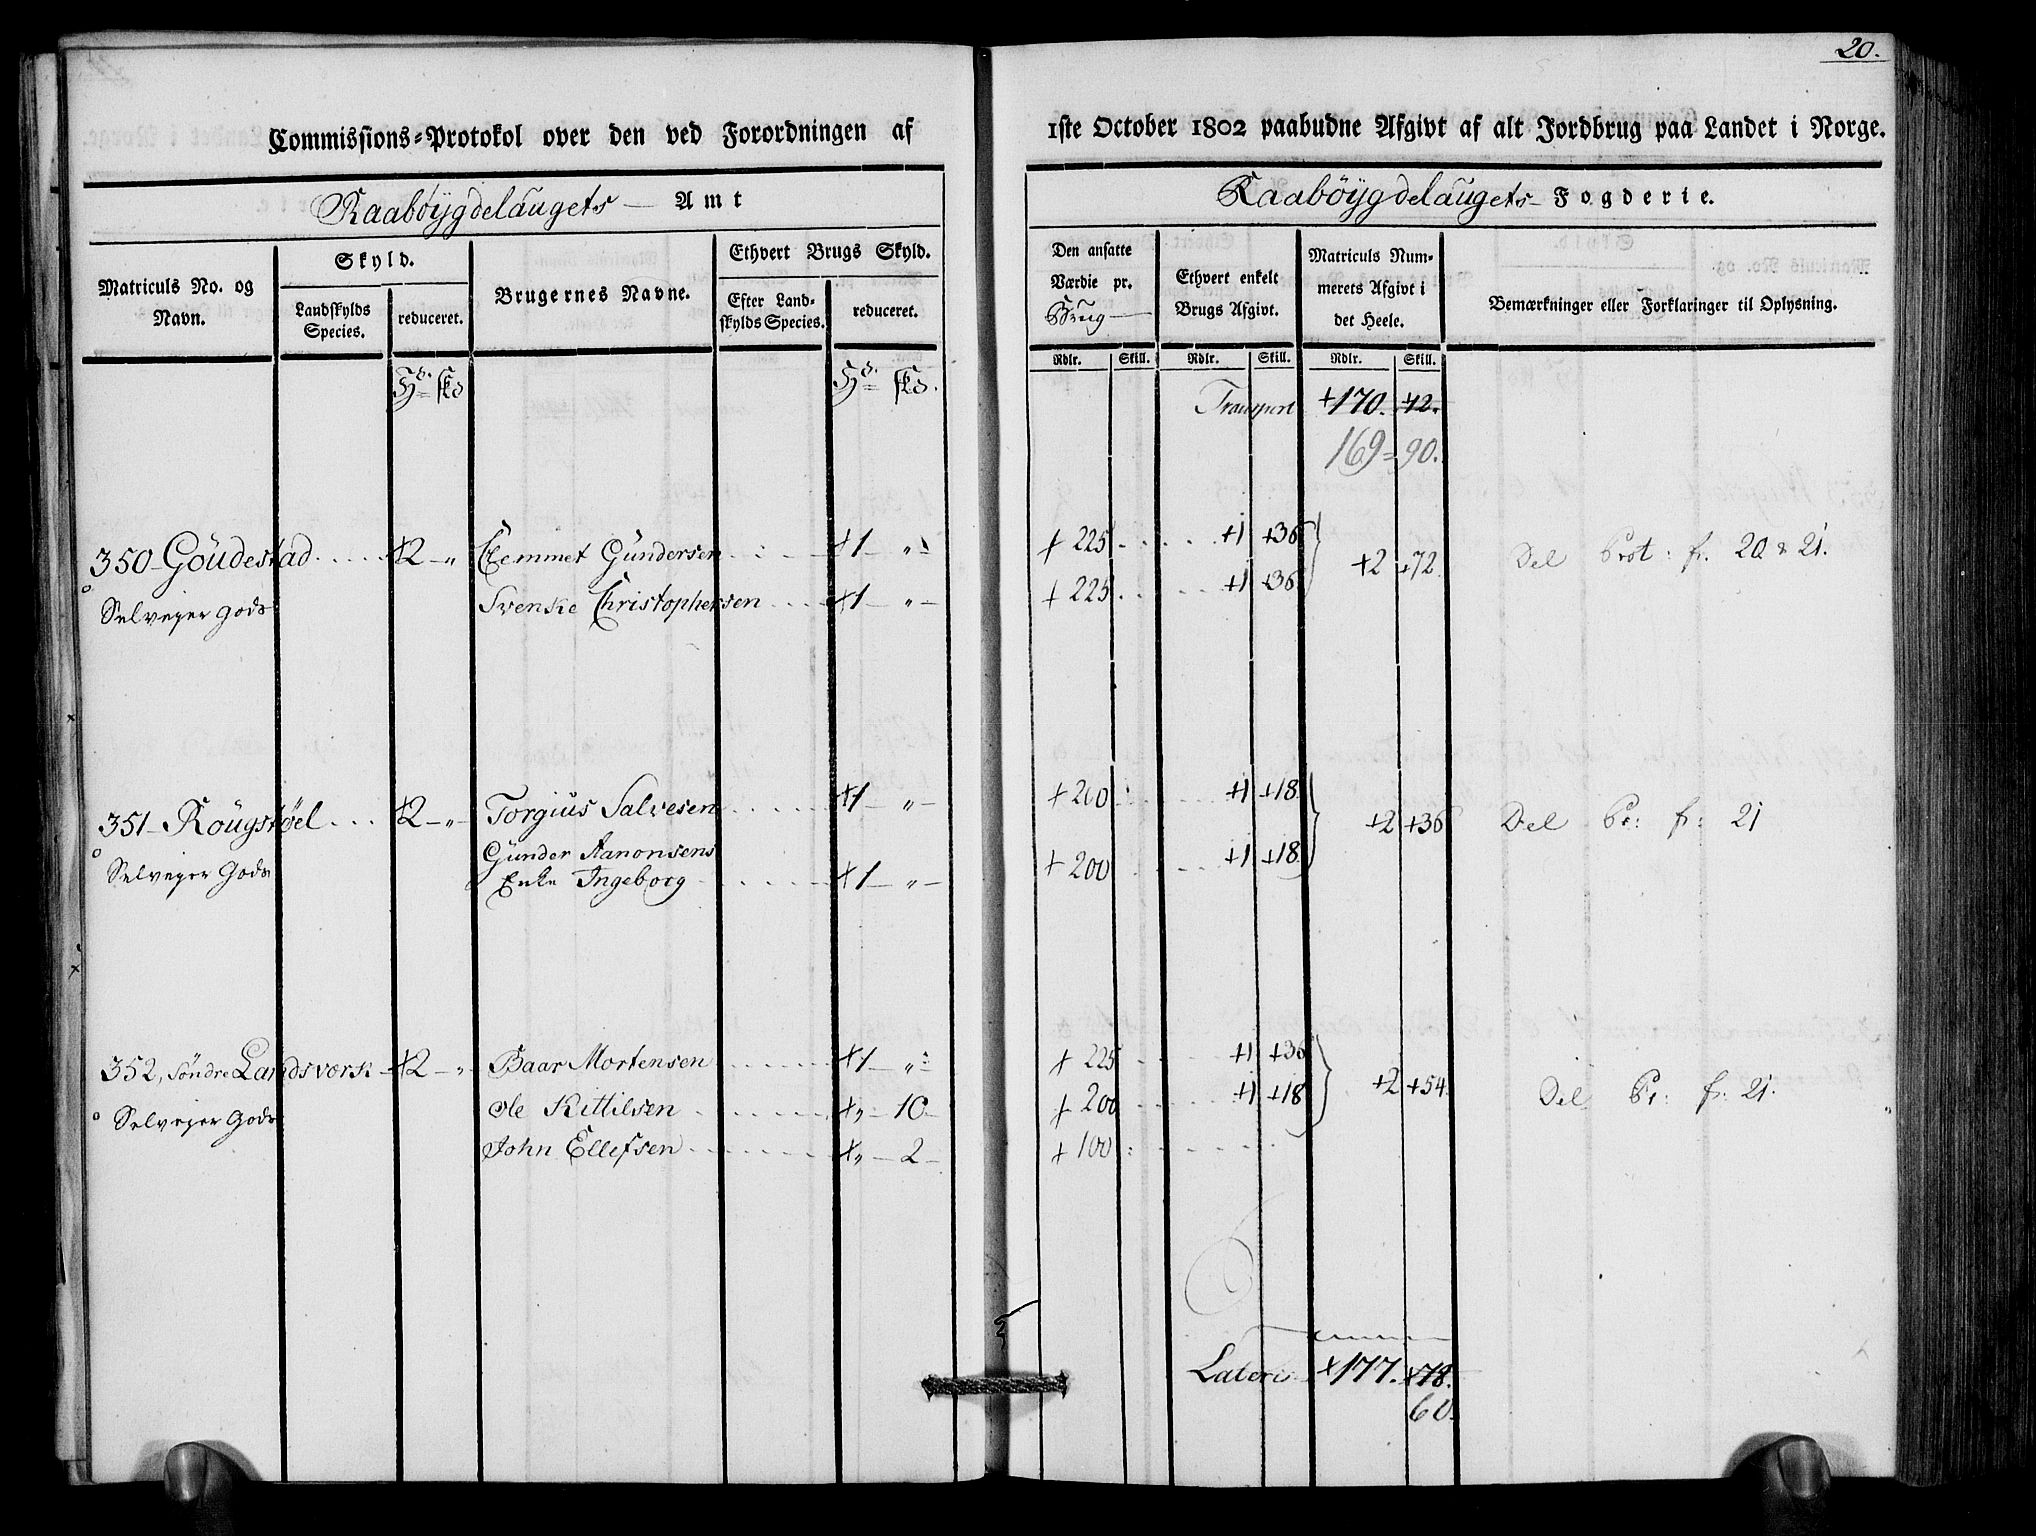 20.
Commissions-Protokol over den ved Forordningen af
1ste October 1802 paabudne Afgivt af alt Jordbrug paa Landet i Norge.
Raabøygdelaugets Amt
Raabøygdelaugets Fogderie.
Matriculs No. og Navn.
Skyld.
Landskylds Species.
reduceret.
Brugernes Navne.
Ethvert Brugs Skyld.
Efter Landskylds Species.
reduceret.
Den ansatte Værdie pr. Brug
Ethvert enkelt Brugs Afgivt.
Matriculs Nummerets Afgivt i det Heele.
Bemærkninger eller Forklaringer til Oplysning.
Rdlr. Skill. Rdlr. Skill. Rdlr. Skill.
Hd. skd Hd. skd.
Transport +170. 42.
169 = 90.
350 - Goudestad .... +2 - „ Clemmet Gundersen +1 - „ - + 225 ..... +1 +36 +2 +72. Del Prot: fr. 20 & 21.
Selveyer gods Svenke Christophersen .... +1 - „ - + 225. ..... +1 +36
351 - Rougstøel ... +2 - „ - Torgius Salvesen +1 - „ - + 200 ..... +1 +18 +2 +36 Del Pr: fr: 21
Gunder Aanonsens
Selveyer Gods Enke Ingeborg ..... +1 - „ - + 200 ..... +1 +18
352, Søndre Landsværk - +2 - „ - Baar Mortensen ...... +1 „ - + 225 ..... +1 +36 +2 +54. Del Pr: fr: 21.
Selveyer Gods Ole Kittilsen ....... +„ - 10 - + 200 ..... +1 +18
John Ellefsen ....... +„ - 2 - + 100
Lateris +177. +78.
60.